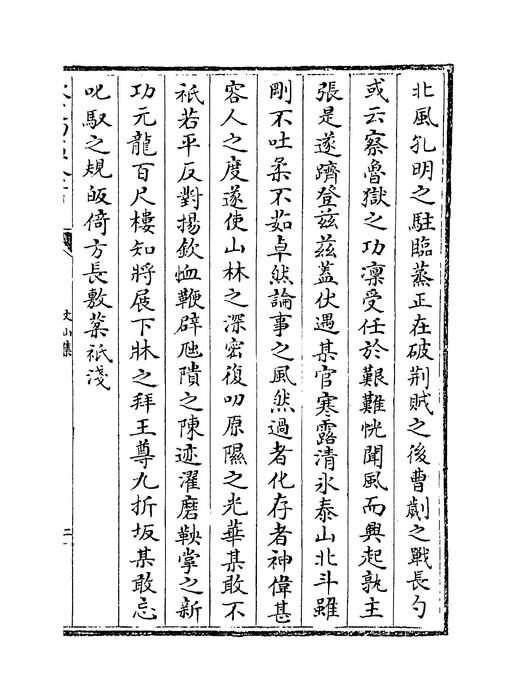 北風孔明之駐臨蒸正在破荆賊之後曹劌之戰長勺
或云察魯獄之功凛受任於艱難恍聞風而興起孰主
張是遂躋登兹兹蓋伏遇某官寒露清氷泰山北斗雖
剛不吐柔不茹卓然論事之風然過者化存者神偉甚
容人之度遂使山林之深密復叨原隰之光華某敢不
祇若平反對揚欽恤鞭辟虺隤之陳迹濯磨鞅掌之新
功元龍百尺樓知將展下牀之拜王尊九折坂某敢忘
叱馭之規皈倚方長敷祇淺
文山集